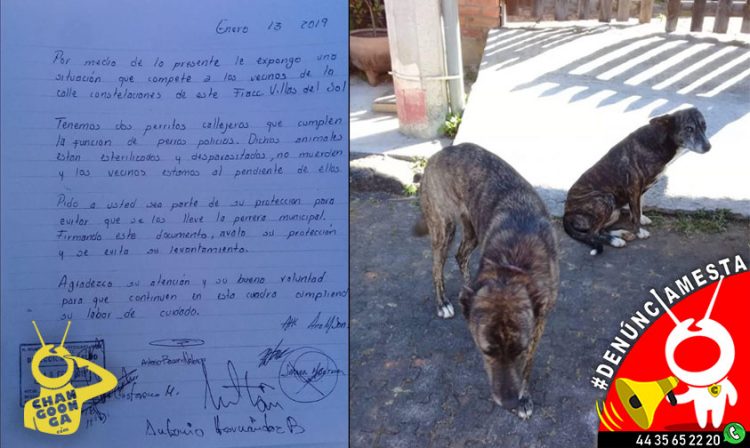 Enero 13 2019
Por medio de la presente le expongo una
situación que compete a los vecinos de la
calle constelaciones de este Fracc. Villas del Sol
Tenemos dos perritos callejeros que cumplen
la función de perros policías. Dichos animales
están esterilizados y desparasitados, no muerden
y los vecinos estamos al pendiente de ellos.
Pido a usted sea parte de su protección para
evitar que se los lleve la perrera municipal.
Firmando este documento, avala su protección
y se evita su levantamiento.
Agradezco su atención y su buena voluntad
para que continuen en esta cuadra cumpliendo
su labor de cuidado.
Att
Antonio Hernández B
CHAN
GOON
GA
.com
#DENÚNCIAMESTA
44 35 65 22 20